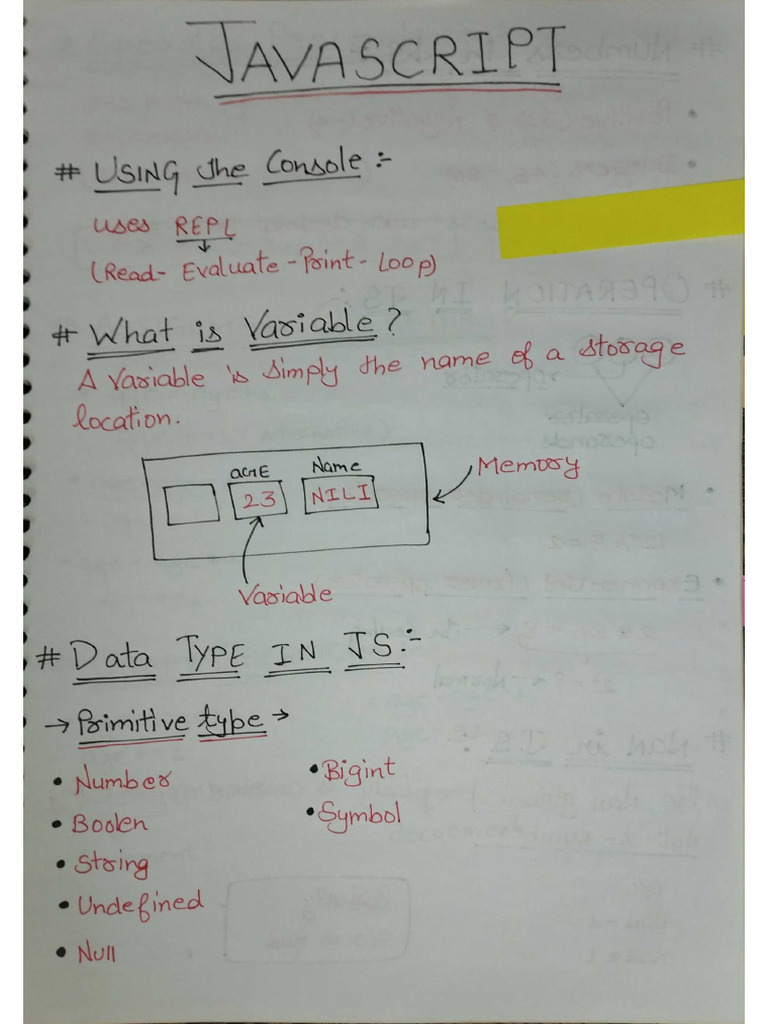 JAVASCRIPT
# USING the Console :-
uses REPL
(Read- Evaluate - Print - Loop)
# What is Variable?
A variable is simply the name of a storage
location.
Name
23 NILI
Memory
Variable
# Data TYPE IN JS :-
→ Primitive type →
• Number • Bigint
• Boolen • Symbol
• String
• Undefined
• Null